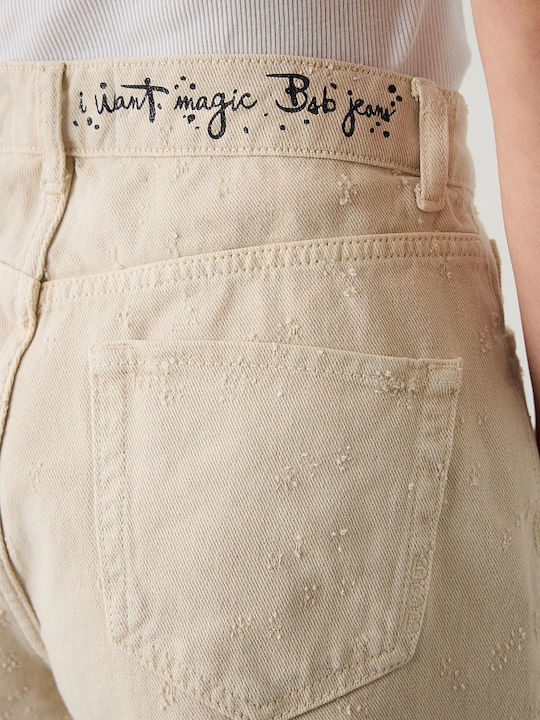 i want magic Bsb jeans